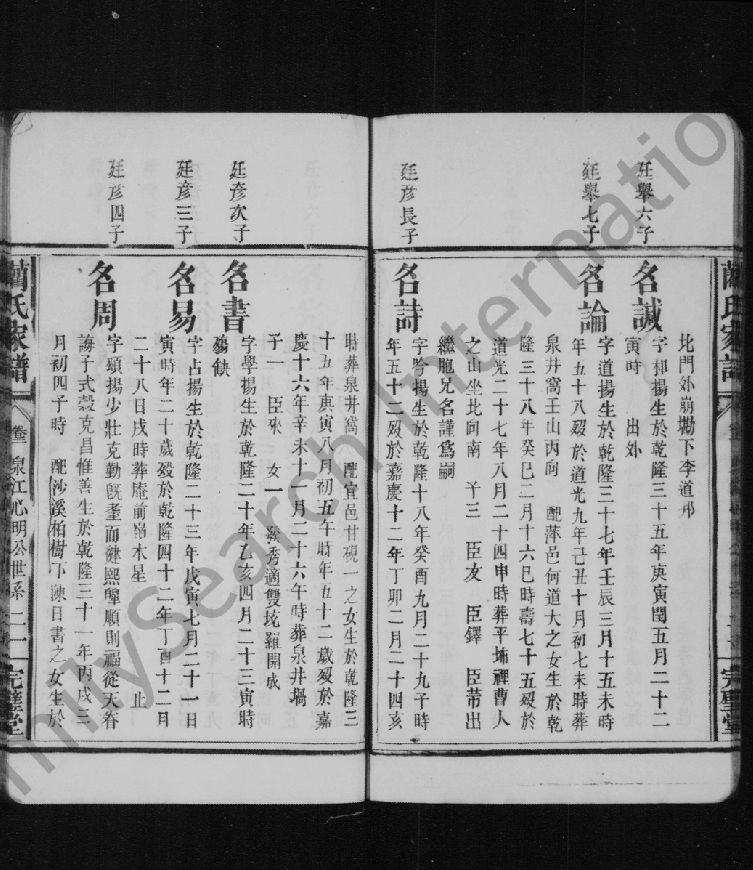 廷舉六子
廷舉七子
廷彦長子
北門外崩墈下李道邦
名諴
字和揚生於乾隆三十五年庚寅閏五月二十二
寅時 出外
名論
字道揚生於乾隆三十七年壬辰三月十五未時
年五十八歿於道光九年己丑十月初七未時葬
泉井窩壬山丙向 配萍邑何道大之女生於乾
隆三十八年癸巳二月十六巳時壽七十五歿於
道光二十七年八月二十四申時葬平埇裡曹人
之山坐北向南 子三 臣友 臣鐸 臣芾出
繼胞兄名謹爲嗣
名詩
字吟揚生於乾隆十八年癸酉九月二十九子時
年五十二歿於嘉慶十二年丁卯二月二十四亥
廷彦次子
廷彦三子
廷彦四子
時葬泉井窩 配宜邑甘硯一之女生於乾隆三
十五年庚寅八月初五午時年五十二歲歿於嘉
慶十六年辛未十一月二十六午時葬泉井塥
子一 臣來 女一 發秀適雙垞羅開成
名書
字學揚生於乾隆二十年乙亥四月二十三寅時
殤缺
名易
字占揚生於乾隆二十三年戊寅七月二十一日
寅時年二十歲歿於乾隆四十二年丁酉十二月
二十八日戌時葬庵前嶺木星 止
名周
字頌揚少壯克勤旣耋而健熙皥順則福從天眷
誨子式穀克昌惟善生於乾隆三十一年丙戌三
月初四子時 配沙溪柏樹下陳日書之女生於
藺氏家譜
泉江心明公世系
二一
完璧堂
FamilySearch International